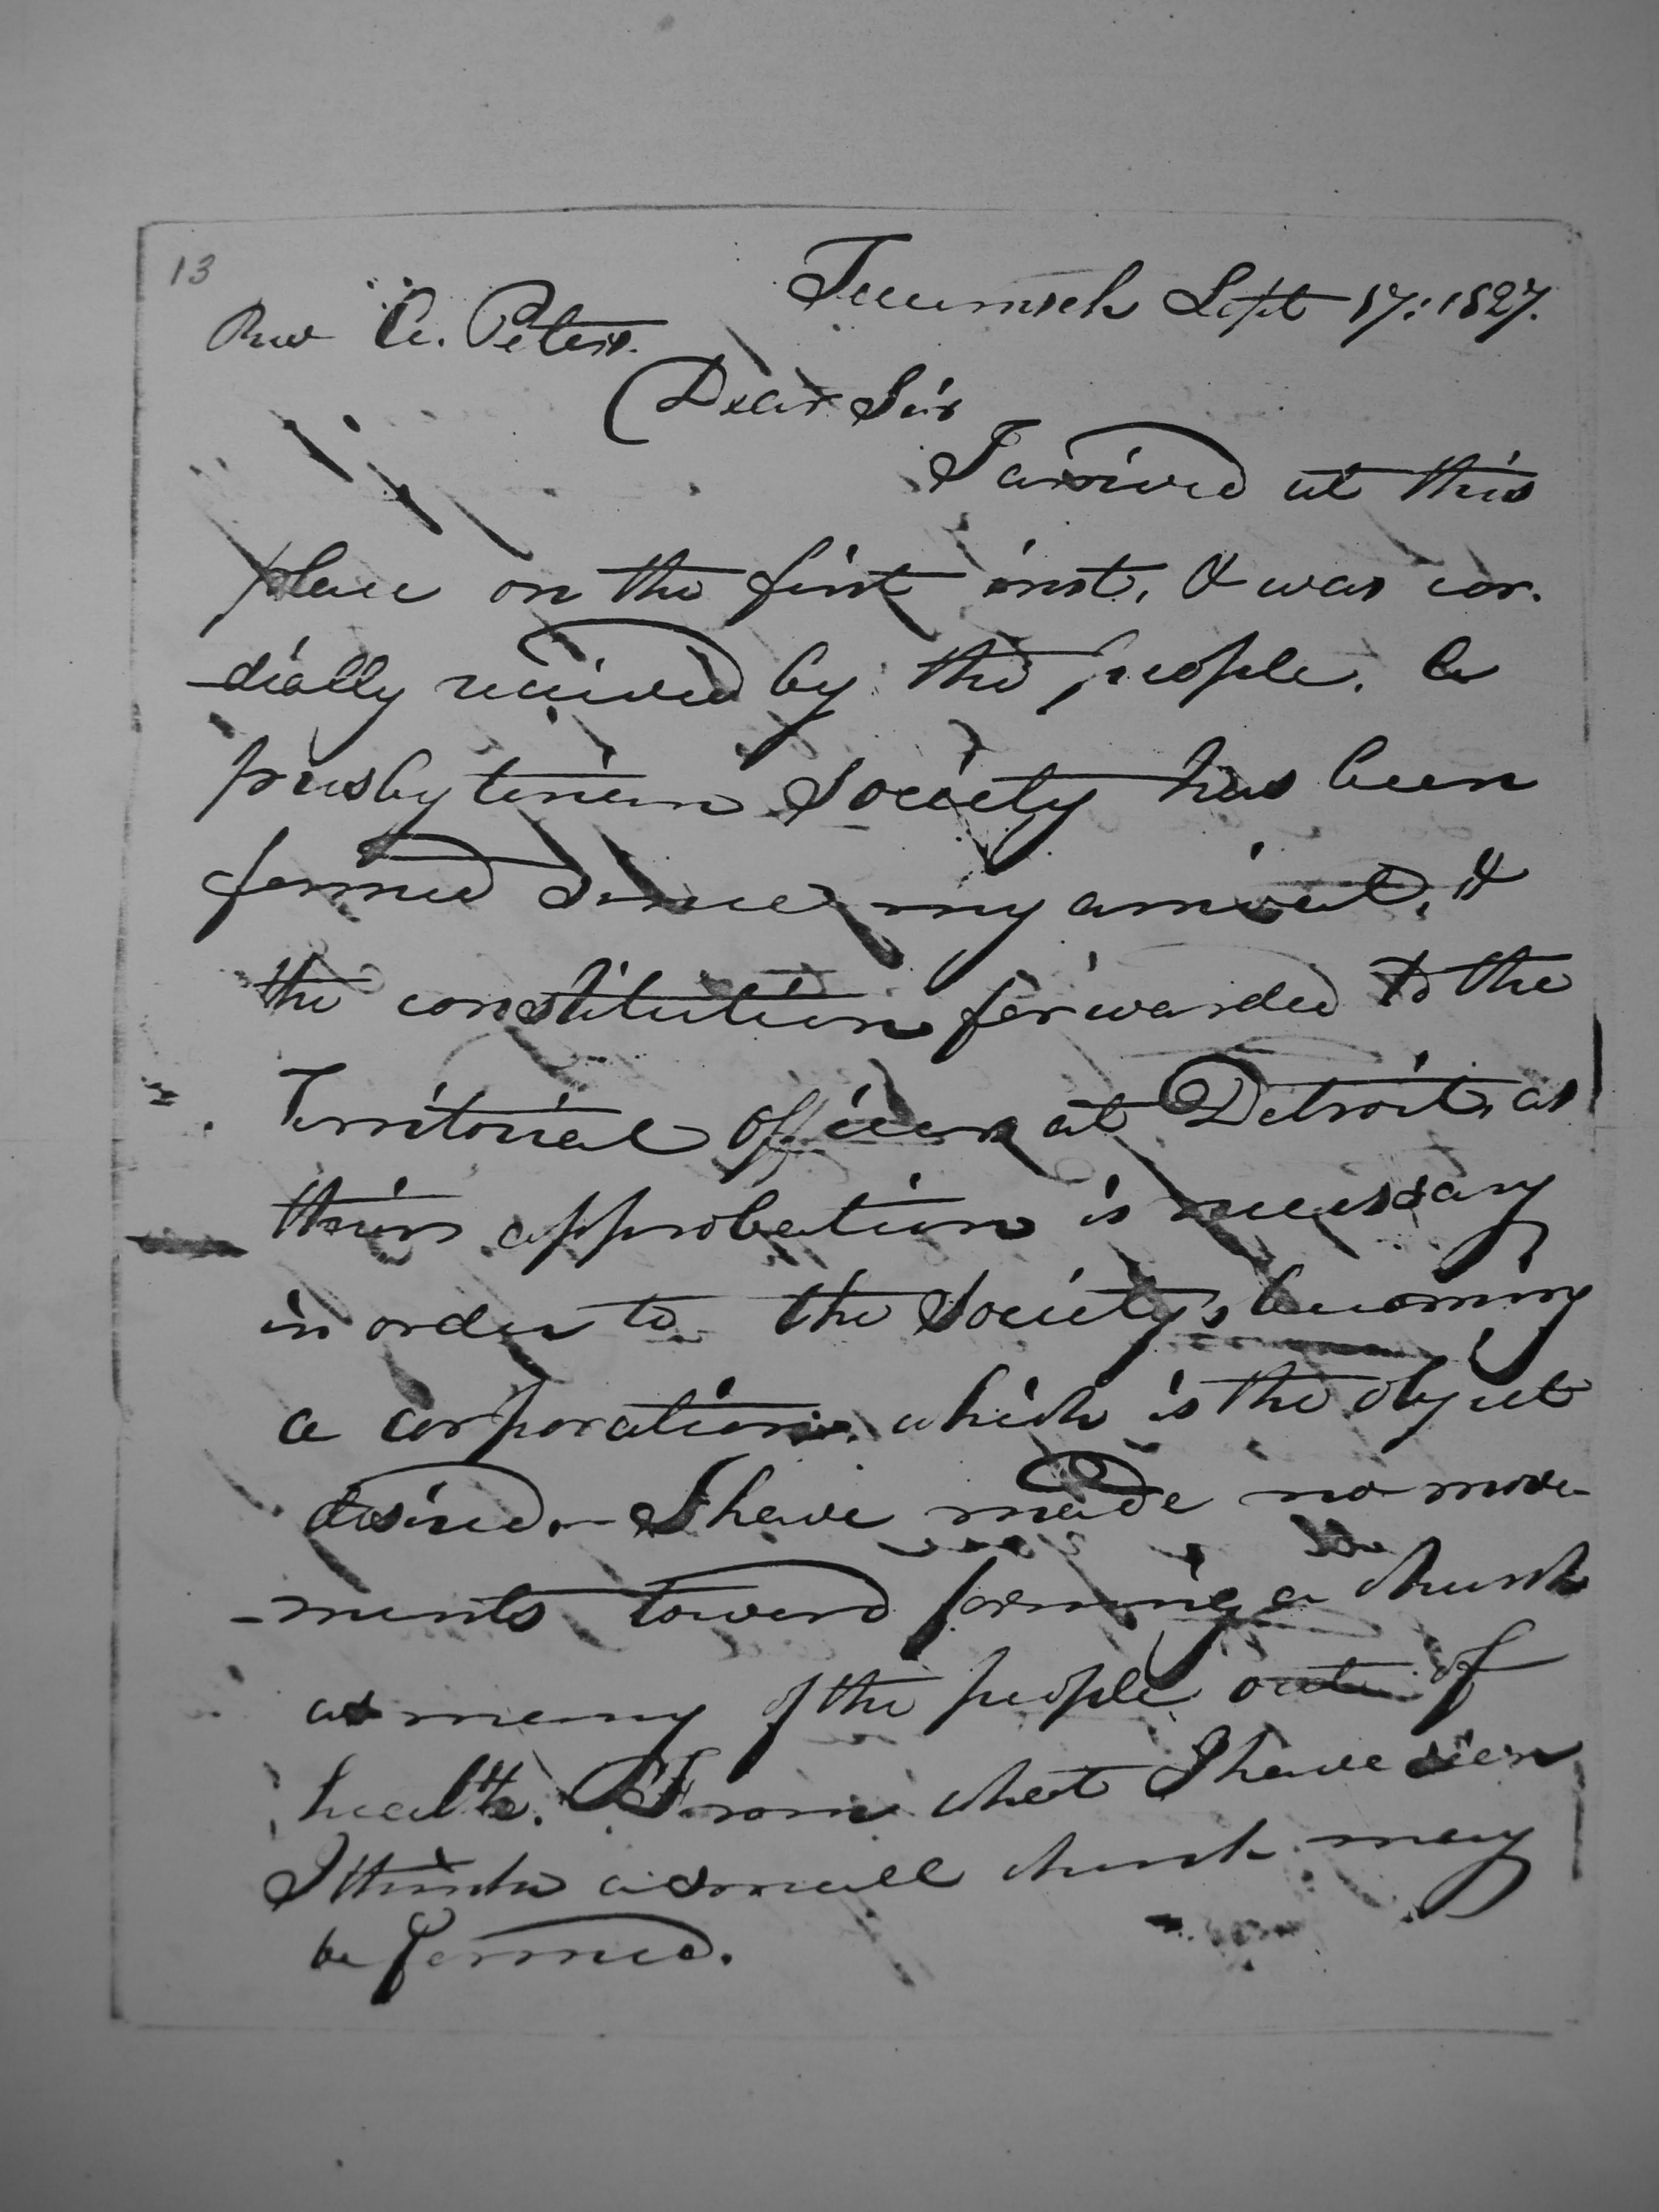 13
Tecumseh Sept 17: 1827.
Rev A. Peters.
Dear Sir
I arrived at this
place on the first inst, & was cor-
-dially received by the people. A
presbyterian Society has been
formed since my arrival, &
the constitution forwarded to the
Territorial officers at Detroit, as
their approbation is necessary
in order to the Society's becoming
a corporation, which is the object
desired. - I have made no move-
-ments toward forming a church
as many of the people out of
health. From what I have seen
I think a small church may
be formed.